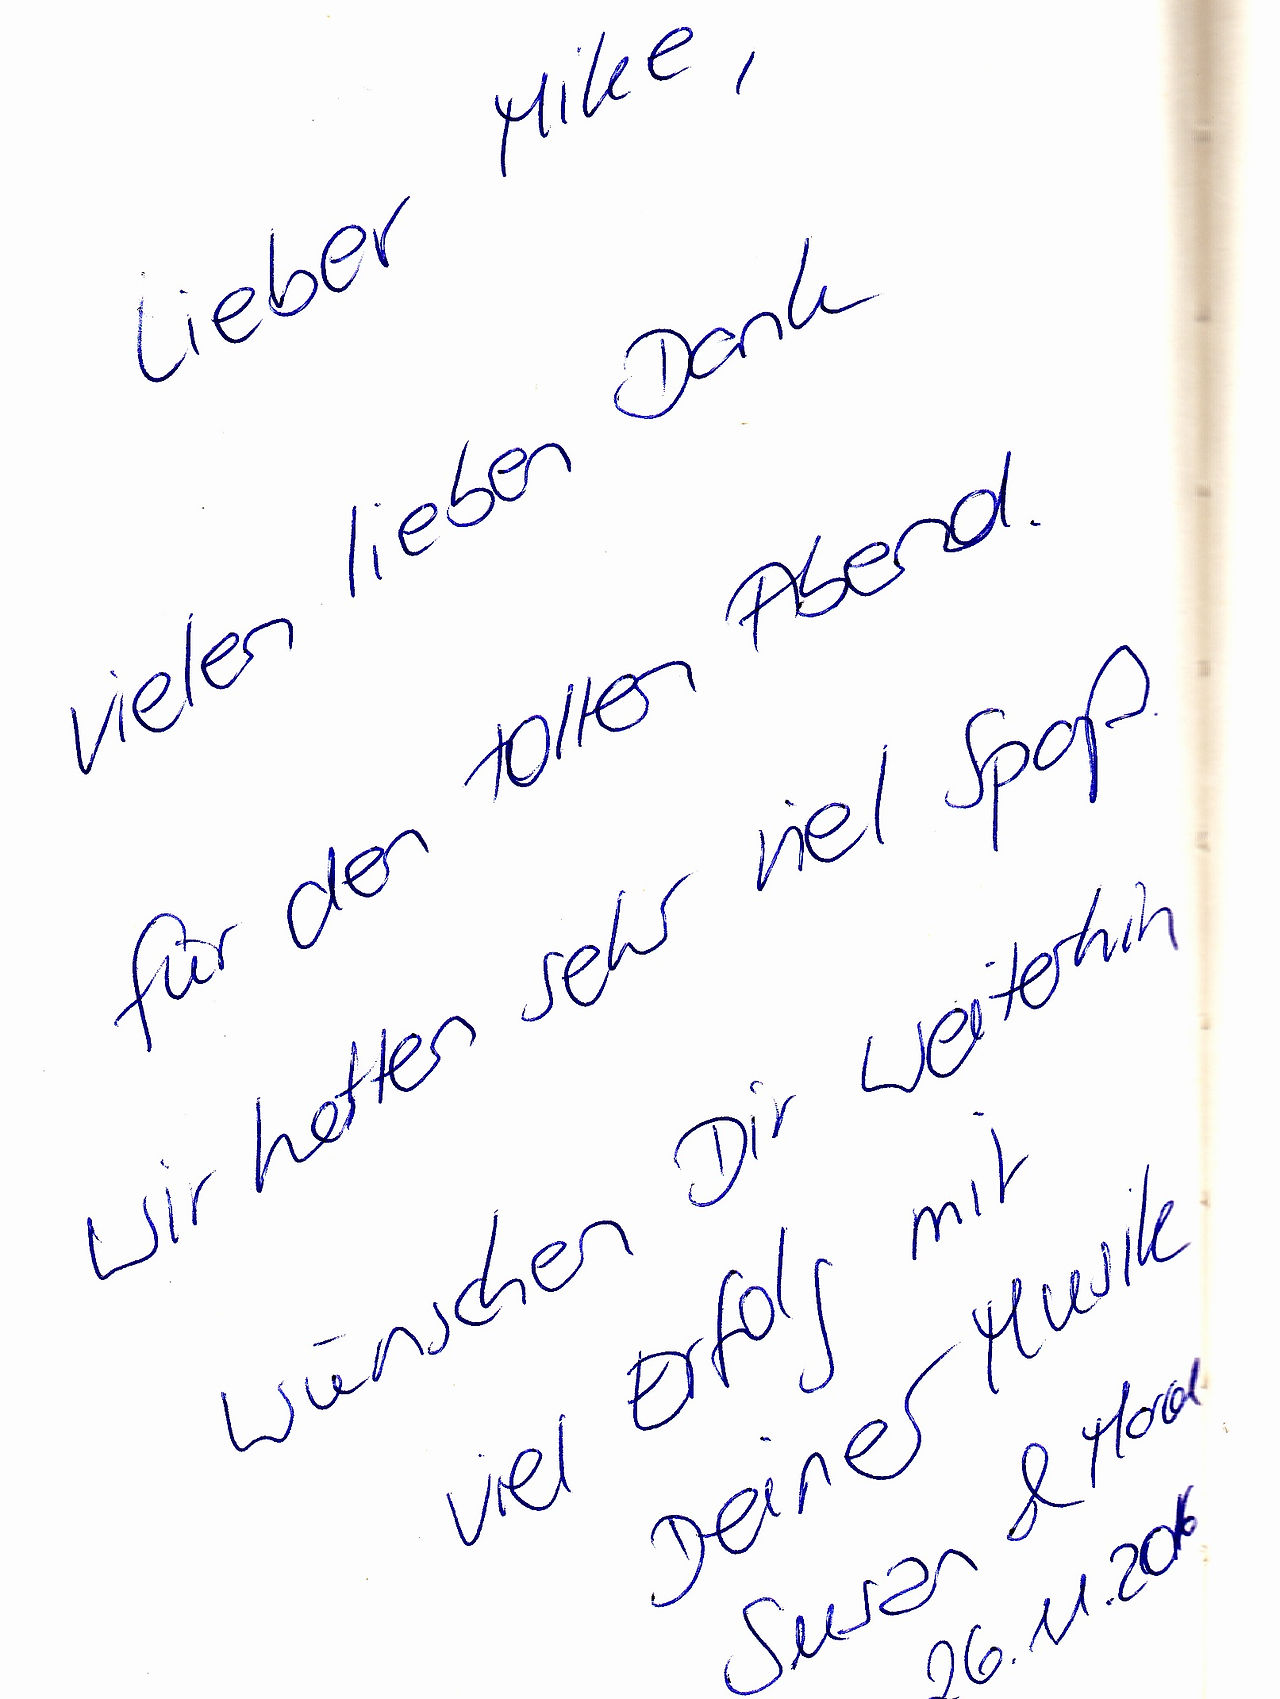 Lieber Mike,
vielen lieben Dank
für den tollen Abend.
Wir hatten sehr viel Spaß.
Wünschen Dir weiterhin
viel Erfolg mit
Deiner Musik
Susan &
26.11.2016